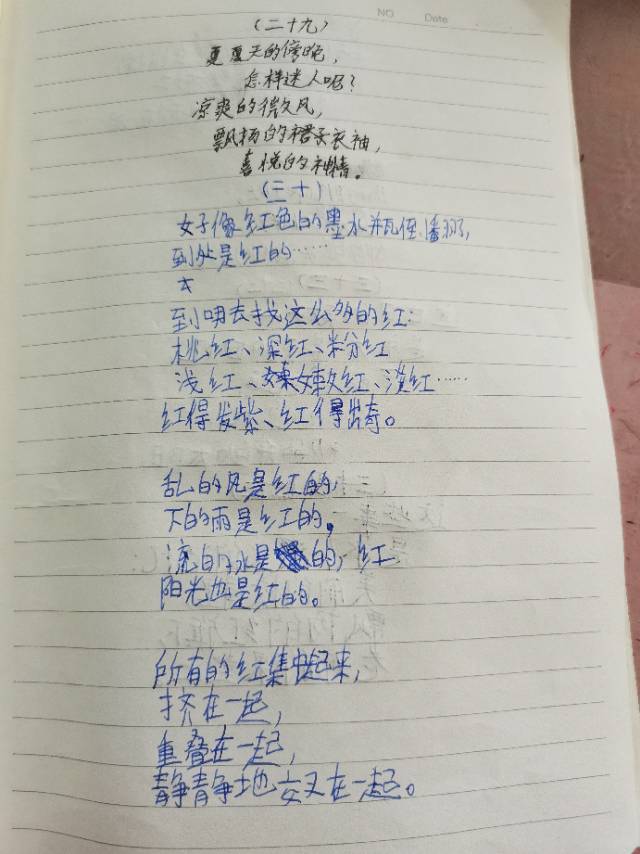 NO Date
(二十九)
夏夏天的傍晚，
怎样迷人呢？
凉爽的微风，
飘扬的裙子衣袖，
喜悦的神情。
(三十)
女子像红色的墨水瓶侄潘翻了，
到处是红的……
去
到哪去找这么多的红：
桃红、深红、粉红
浅红、嫩红、淡红……
红得发紫、红得出奇。
乱的风是红的，
下的雨是红的。
流的水是的，红
阳光也是红的。
所有的红集中起来，
挤在一起，
重叠在一起，
静静地交叉在一起。